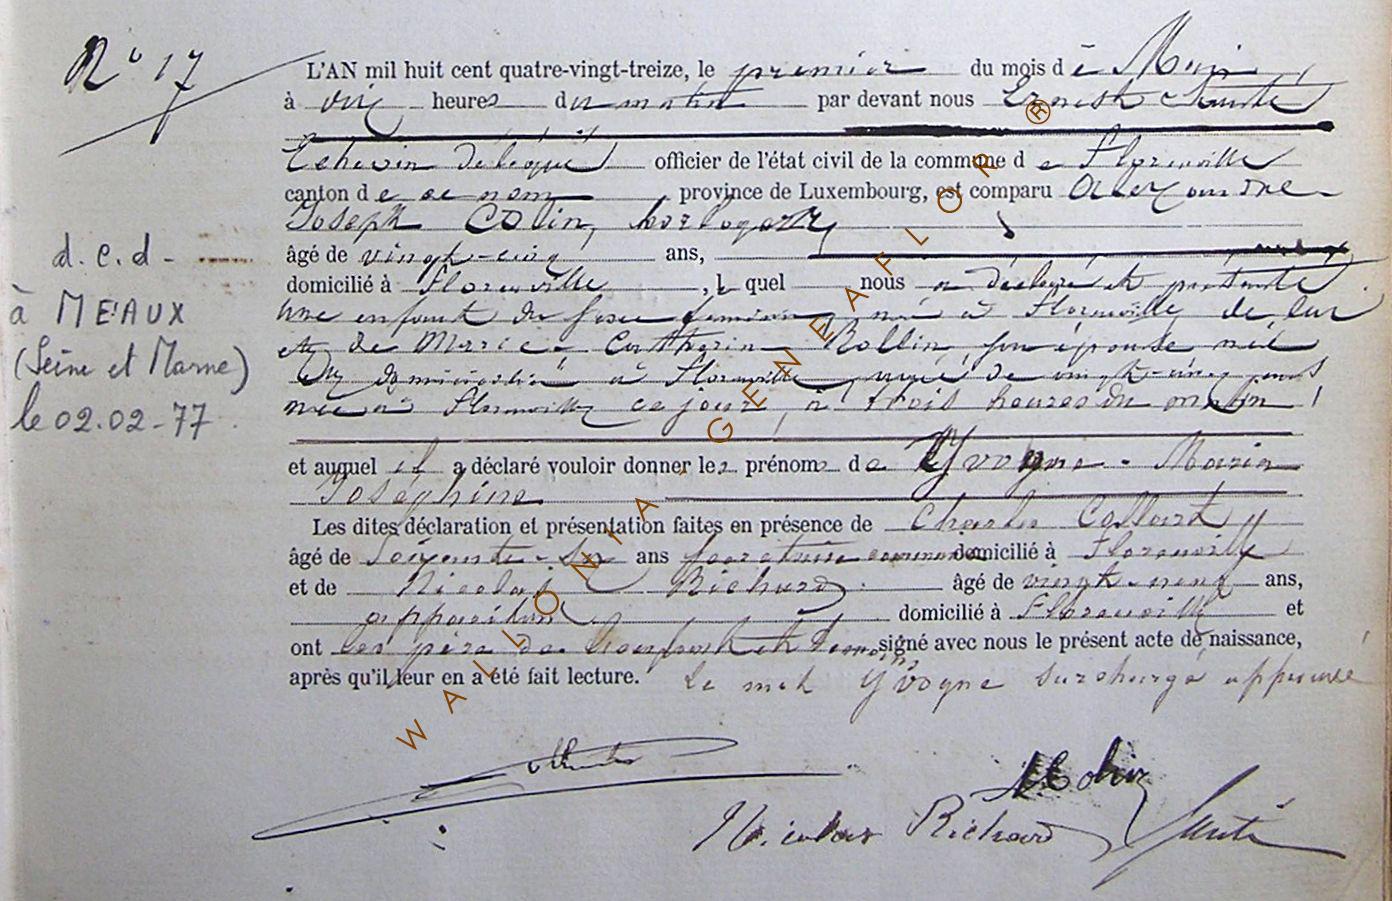 N° 17
L'AN mil huit cent quatre-vingt-treize, le premier du mois de Mai,
à dix heures du matin par devant nous Ernest Santé
Echevin délégué officier de l'état civil de la commune de Florenville
canton de ce nom, province de Luxembourg, est comparu Alexandre
Joseph Colin, horloger,
âgé de vingt-cinq ans,
domicilié à Florenville, lequel nous a déclaré et présenté
une enfant du sexe féminin, née à Florenville de lui
et de Marie Catherine Rollin son épouse née
et domiciliée à Florenville, âgée de vingt-cinq ans
née à Florenville ce jour, à trois heures du matin,
et auquel il a déclaré vouloir donner les prénoms de Yvogne - Maria
Joséphine
Les dites déclaration et présentation faites en présence de Charles Collart
âgé de Soixante-six ans domicilié à Florenville
et de Nicolas Richard âgé de vingt-neuf ans,
appariteur domicilié à Florenville et
ont les père de l'enfant et témoins signé avec nous le présent acte de naissance,
après qu'il leur en a été fait lecture. Le mot Yvogne surchargé approuvé
Colin
Nicolas Richard Santé
d.c.d -
à MEAUX
(Seine et Marne)
le 02.02-77.
WALLONIA - GENEAFLOR ®